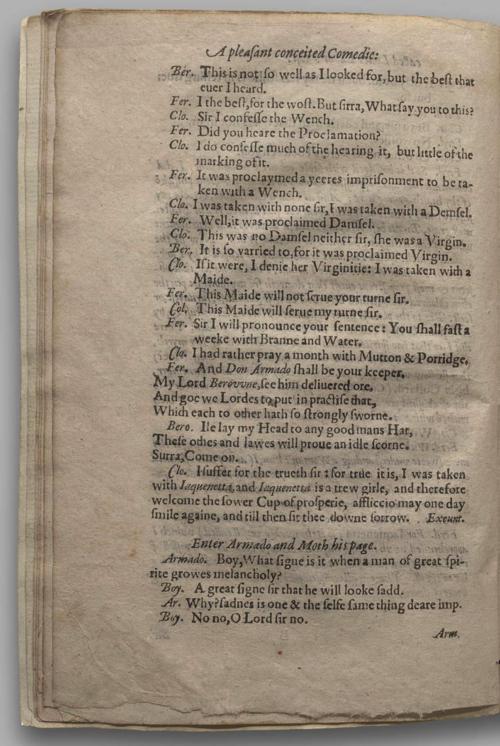 A pleasant conceited Comedie:
Ber. This is not so well as I looked for, but the best that
euer I heard.
Fer. I the best, for the wost. But sirra, What say you to this?
Clo. Sir I confesse the Wench.
Fer. Did you heare the Proclamation?
Clo. I do confesse much of the hearing it, but little of the
marking of it.
Fer. It was proclaymed a yeeres imprisonment to be ta-
ken with a Wench.
Clo. I was taken with none sir, I was taken with a Demsel.
Fer. Well, it was proclaimed Damsel.
Clo. This was no Damsel neither sir, she was a Virgin.
Ber. It is so varried to, for it was proclaimed Virgin.
Clo. If it were, I denie her Virginitie: I was taken with a
Maide.
Fer. This Maide will not serue your turne sir.
Col. This Maide will serue my turne sir.
Fer. Sir I will pronounce your sentence: You shall fast a
weeke with Branne and Water.
Clo. I had rather pray a month with Mutton & Porridge.
Fer. And Don Armado shall be your keeper.
My Lord Berowne, see him deliuered ore,
And goe we Lordes to put in practise that,
Which each to other hath so strongly sworne.
Bero. Ile lay my Head to any good mans Hat,
These othes and lawes will proue an idle scorne.
Surra, Come on.
Clo. I suffer for the trueth sir: for true it is, I was taken
with Iaquenetta, and Iaquenetta is a trew girle, and therefore
welcome the sower Cup of prosperie, affliccio may one day
smile againe, and till then sit thee downe sorrow. Exeunt.
Enter Armado and Moth his page.
Armado. Boy, What signe is it when a man of great spi-
rite growes melancholy?
Boy. A great signe sir that he will looke sadd.
Ar. Why? sadnes is one & the selfe same thing deare imp.
Boy. No no, O Lord sir no.
Arm.